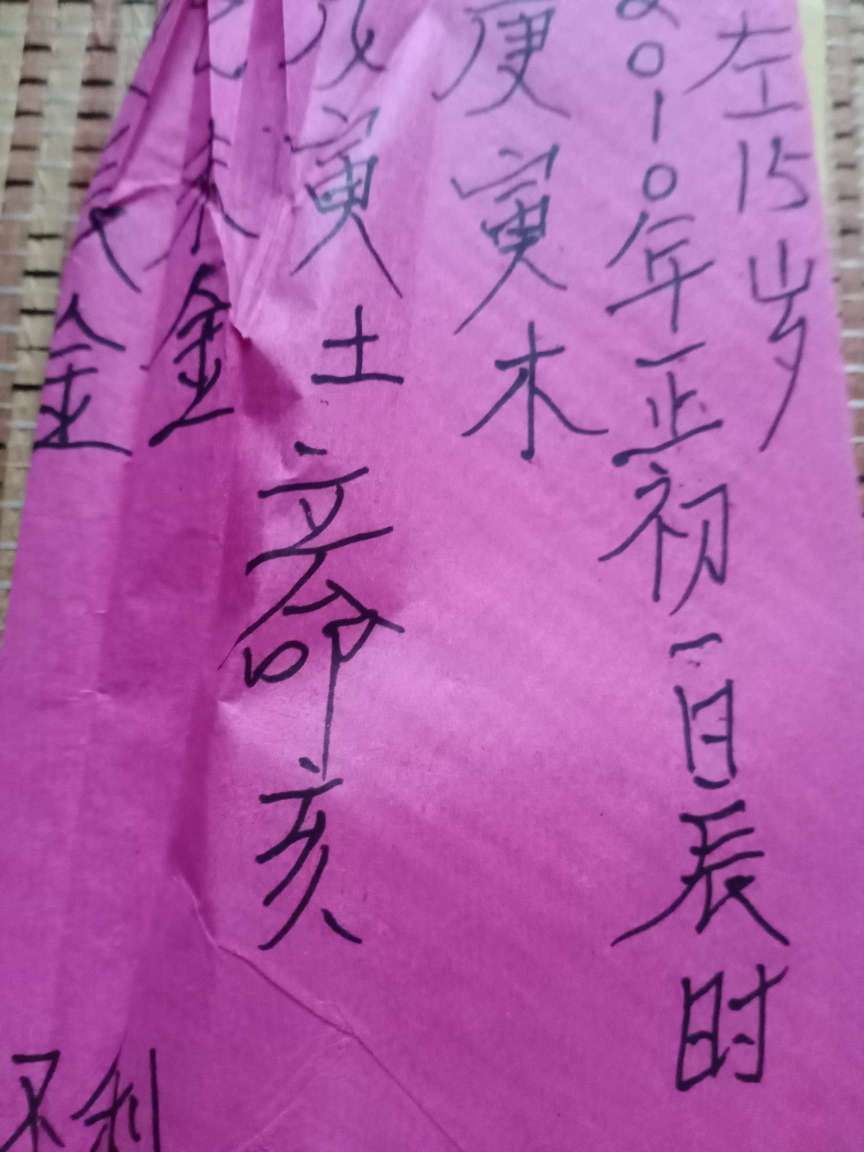 左15岁
2010年正初一日辰时
庚寅木
戊寅土 立命亥
未金
辰金
不利